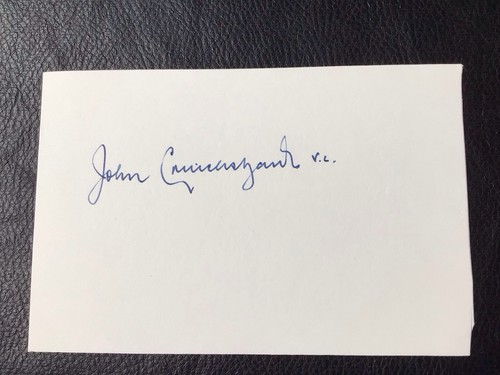 John Cruickshank V.C.